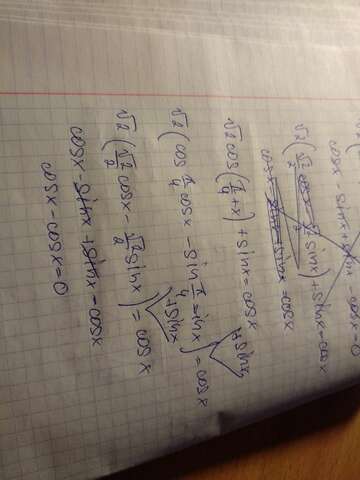 cosx - sinx + sinx - cosx = 0
√2 (√2/2 cosx - √2/2 sinx) + sinx = cosx
cosx - sinx + sinx = cosx
√2 cos (π/4 + x) + sinx = cosx
√2 (cos π/4 cosx - sin π/4 sinx) + sinx = cosx
√2 (√2/2 cosx - √2/2 sinx) + sinx = cosx
cosx - sinx + sinx = cosx
cosx - cosx = 0